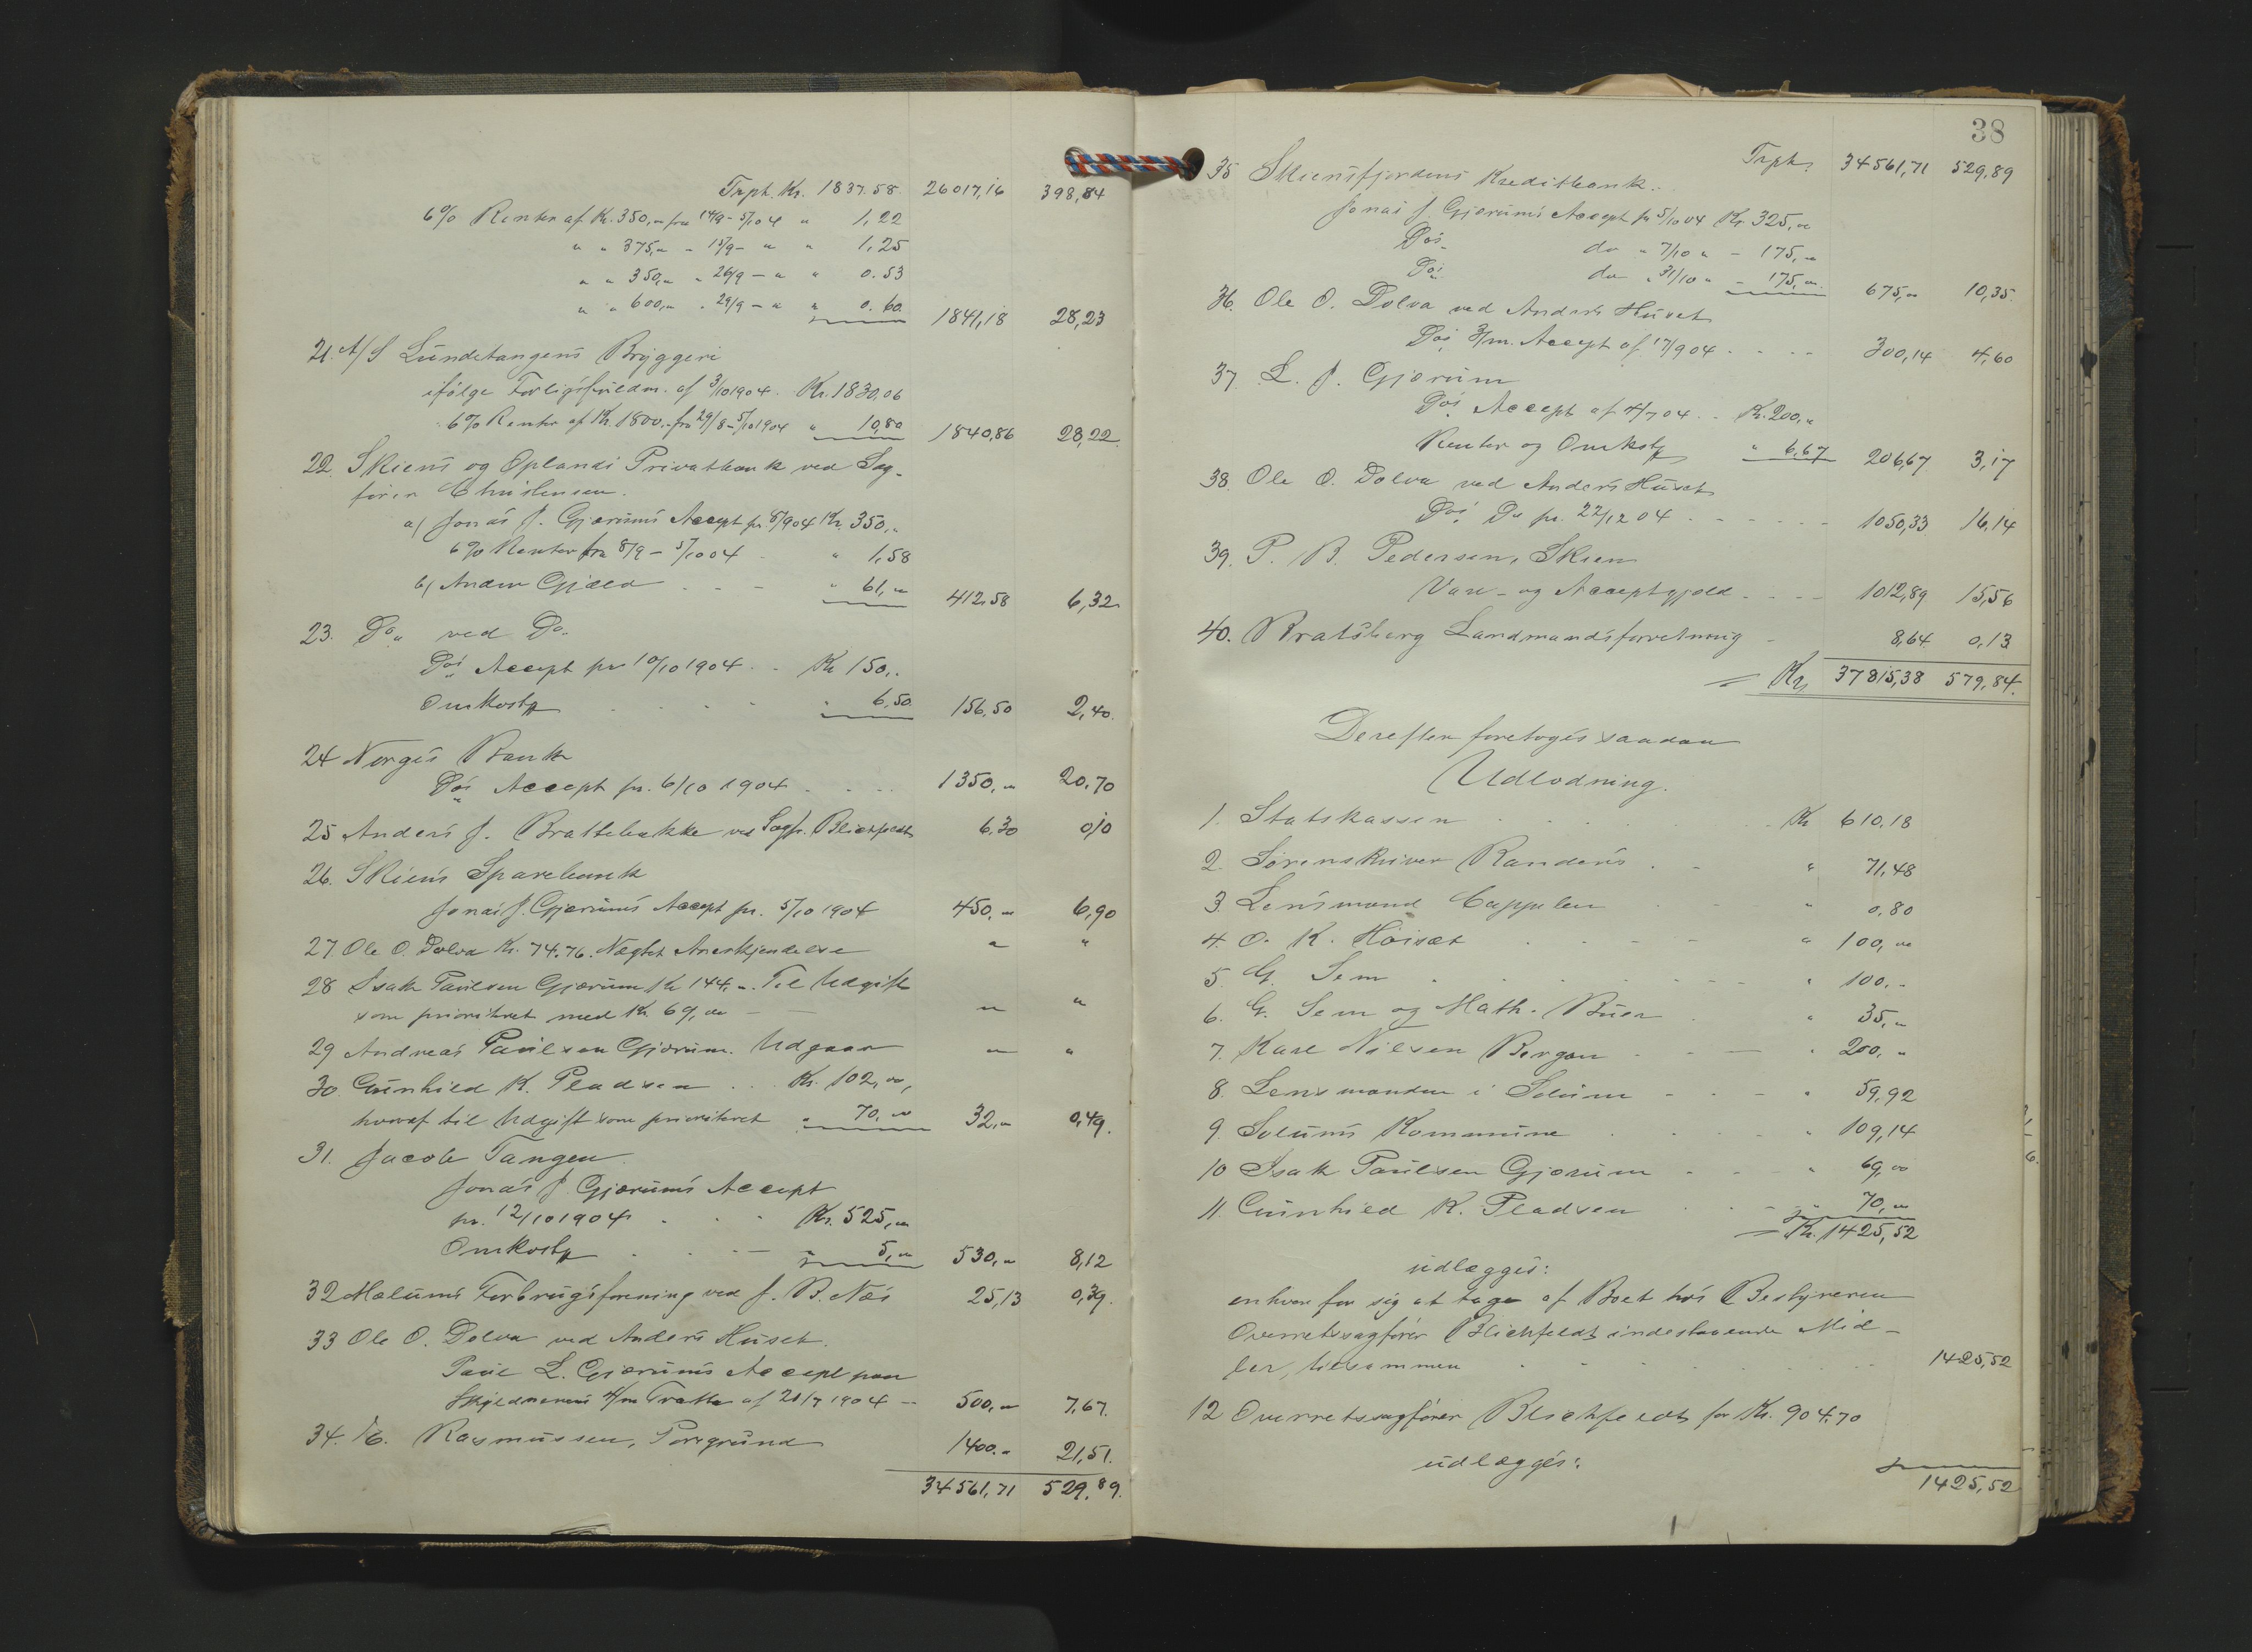 Trpt. Kr. 1837.58 26017,16 398,84
6% Renter af Kr. 350,- fra 14/9 - 5/10 04 " 1,22
" " 375,- - 15/9 - " " 1,25
" " 350,- " 26/9 - " " 0.53
" " 600,- " 29/9 - " " 0.60 1841,18 28,23
21. A/S Lundetangens Bryggeri
ifølge Forligsfuldm. af 3/10 1904. Kr. 1830,06
6% Renter af Kr. 1800.- fra 29/8 - 5/10 1904 " 10,80 1840,86 28,22.
22. Skiens og Oplands Privatbank ved Sag-
fører Christensen.
a/ Jonas J. Gjærums Accept pr. 8/9 04 Kr. 350,-
6% Renter fra 8/9 - 5/10 04 " 1,58
b/ Anden Gjæld - - - " 61,- 412.58 6,32
23. Do. ved Do.
Dos Accept pr 10/10 1904 . . Kr 150,-
Omkostg . . . . " 6,50 156,50 2,40.
24 Norges Bank
Dos Accept pr. 6/10 1904 . . . 1350,- 20.70
25 Anders J. Brattebakke ved Sagf. Blichfeldt 6.30 0,10
26. Skiens Sparebank
Jonas J. Gjærums Accept pr. 5/10 1904 450,- 6,90
27 Ole O. Dolva Kr. 74.76. Nægtet Anerkjendelse " "
28 Isak Paulsen Gjærum Kr 144,-. Til Udgift
som prioriteret med Kr. 69,00 - - " "
29 Andreas Paulsen Gjærum. Udgaar " "
30. Gunhild K. Pladsen . . Kr. 102,00,
hvoraf til Udgift som prioriteret " 70,00 32,- 0,49.
31. Jacob Tangen
Jonas J. Gjærums Accept
pr. 12/10 1904 . . . Kr. 525,00
Omkostg . . . - " 5,00 530,- 8,12
32 Mælums Forbrugsforening ved J. B. Næs 25,13 0,39.
33 Ole O. Dolva ved Anders Huset.
Paul L. Gjærums Accept paa
Skyldnerens 4/m Tratte af 21/7 1904 - - 500,- 7,67.
34. Rasmussen, Porsgrund 1400.- 21,51.
34561,71 529,89.
38
Trpt. 34561,71 529,89
35 Skiensfjordens Kreditbank.
Jonas J. Gjærums Accept pr 5/10 04 Kr. 325,00
Dos do " 7/10 " - 175,-
Dos do " 31/10 " - 175,00 675,00 10,35.
36. Ole O. Dolva ved Anders Huset
Dos 3/m. Accept af 17/9 04 . . . . 300,14 4,60
37. L. J. Gjærum
Dos Accept af 4/7 04 . . Kr. 200,-
Renter og Omkostg " 6,67 206,67 3,17
38. Ole O. Dolva ved Anders Huset
Dos Do pr. 22/12 04 . - - - - - 1050,33 16,14
39. P. B. Pedersen, Skien
Vare- og Acceptgjæld . - - - 1012,89 15,56
40. Bratsberg Landmandsforretning - 8,64 0,13
= Kr. 37815,38 579,84.
Derefter foretoges saadan
Udlodning.
1. Statskassen . . . . . Kr 610.18
2. Sorenskriver Randers . - " 71,48
3. Lensmand Cappelen . - - " 0,80
4. O. K. Høisæt . - - - " 100,00
5. G. Sem . . . - - - " 100.-
6. G. Sem og Math. Buer . " 35,-
7. Karl Nilsen Bergan - - - " 200,-
8. Lensmanden i Solum - - - " 59,92
9. Solums Kommune . . - - " 109,14
10 Isak Paulsen Gjærum - - - " 69,00
11. Gunhild K. Pladsen . . - " 70,00
= Kr. 1425,52
udlægges:
enhver for sig at tage af Boet hos Bestyreren
Overretssagfører Blichfeldt indestaaende Mid-
ler, tilsammen . - - . . . 1425,52
12 Overretssagfører Blichfeldt for Kr. 904.70
udlægges:
1425,52